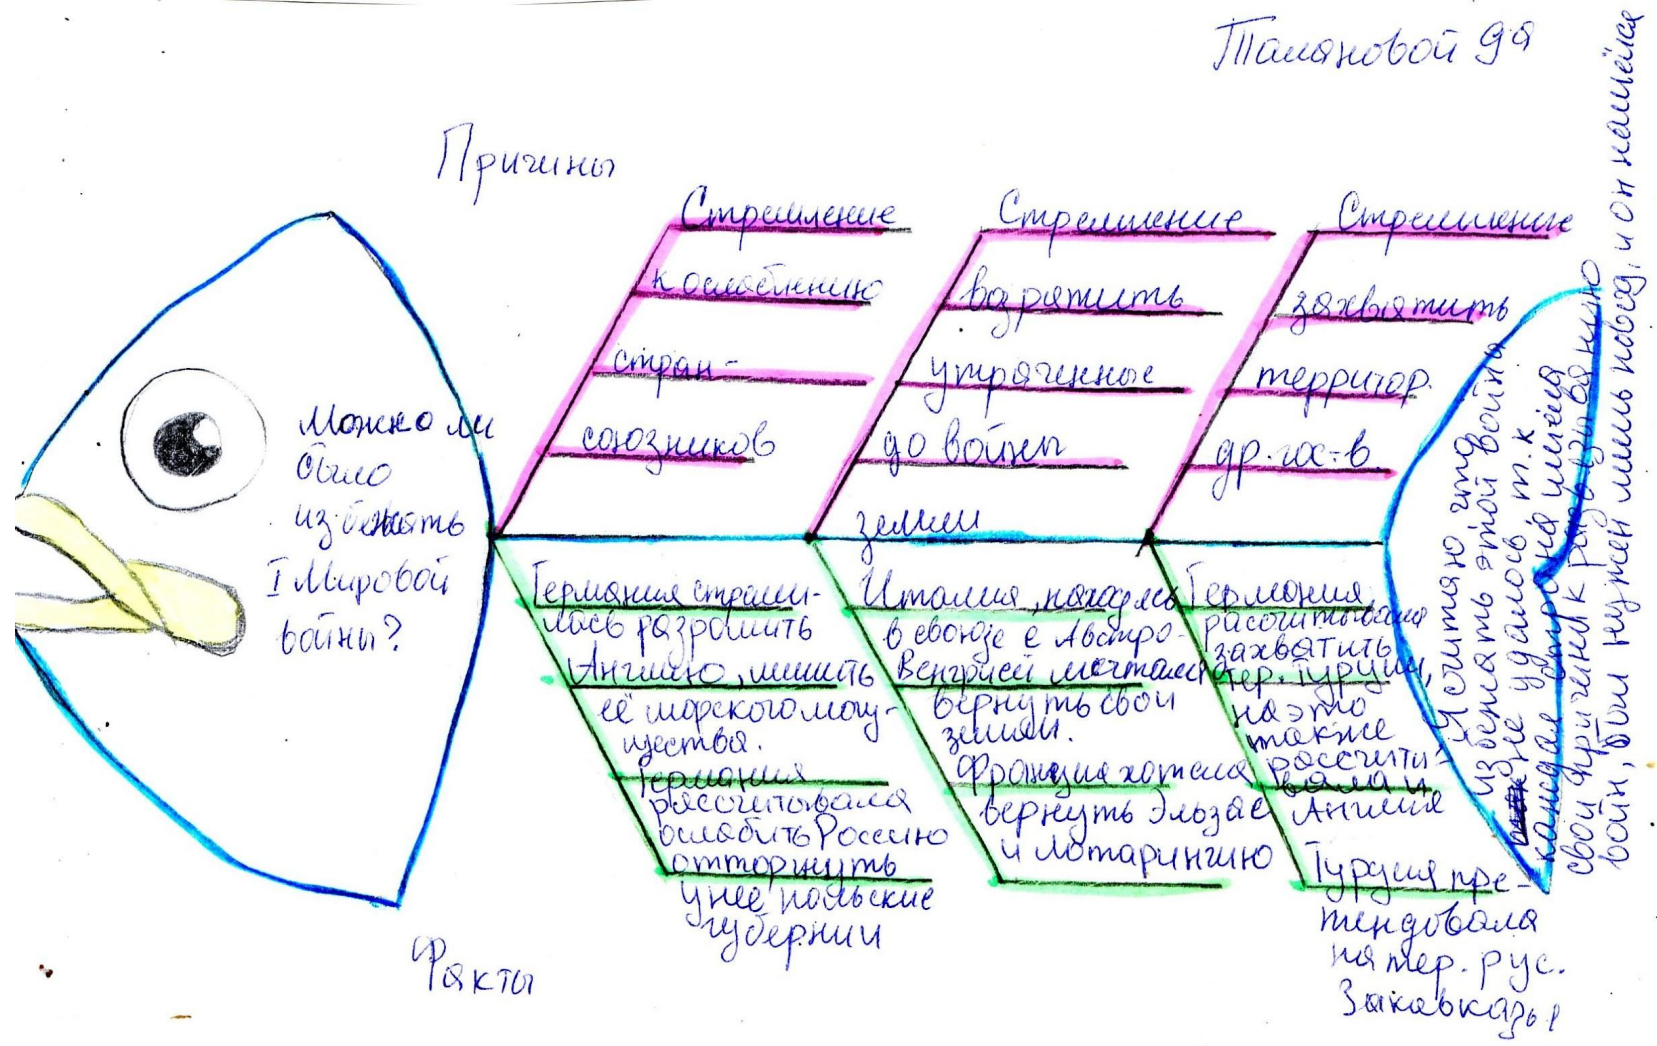 Талановой 9а
Причины
Стремление
к ослаблению
стран-
союзников
Стремление
возратить
утраченные
до войны
земли
Стремление
захватить
территор.
др. гос-в
Можно ли
было
избежать
I Мировой
войны?
Германия стреми-
лась разромить
Англию, лишить
её морского могу-
щества.
Германия
рассчитовала
ослабить Россию
отторгнуть
у неё польские
губернии
Италия, находясь
в союзе с Австро-
Венгрией мечтала
вернуть свои
земли.
Франция хотела
вернуть Эльзас
и Лотарингию
Германия
рассчитывала
захватить
тер. Турции,
на это
также
рассчити-
вала и
Англия
Турция пре-
тендовала
на тер. рус.
Закавказья
Я считаю что
избежать этой войны
не удалось т.к
каждая сторона имела
свои причины к развязыванию
войн, был нужен лишь повод, и он нашёлся
Факты